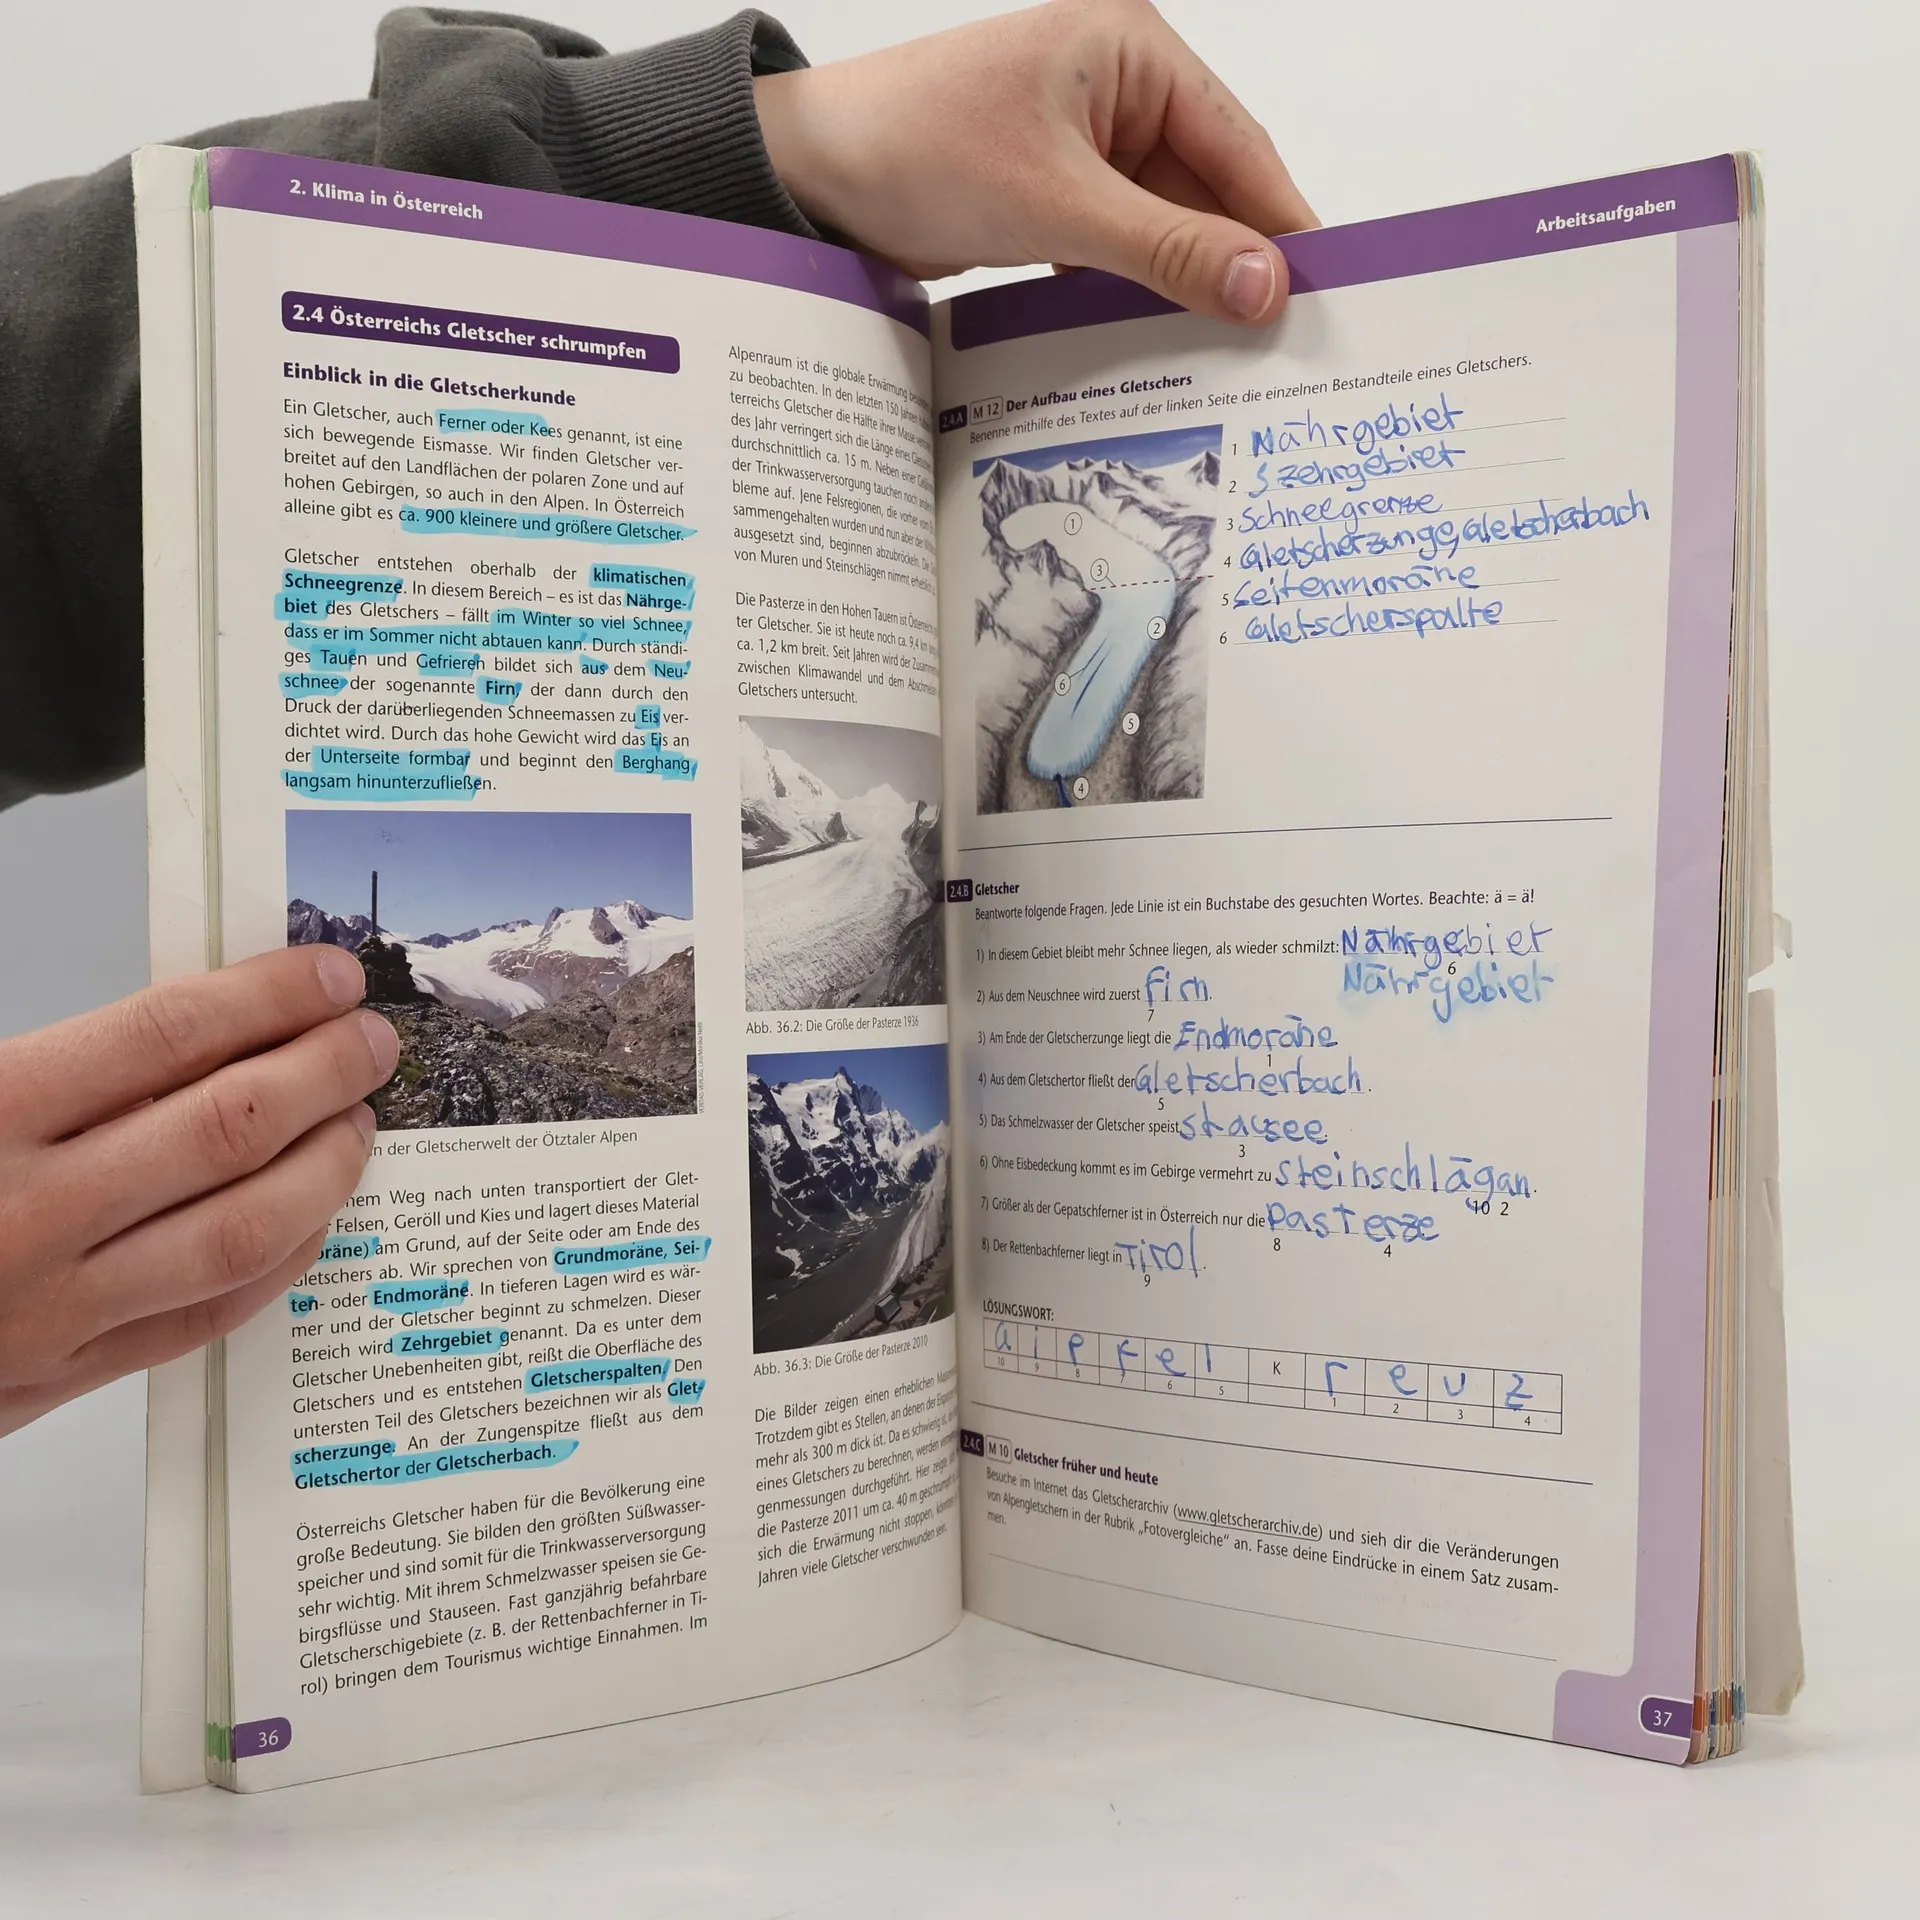 2. Klima in Österreich
2.4 Österreichs Gletscher schrumpfen
Einblick in die Gletscherkunde
Ein Gletscher, auch Ferner oder Kees genannt, ist eine
sich bewegende Eismasse. Wir finden Gletscher ver-
breitet auf den Landflächen der polaren Zone und auf
hohen Gebirgen, so auch in den Alpen. In Österreich
alleine gibt es ca. 900 kleinere und größere Gletscher.
Gletscher entstehen oberhalb der klimatischen
Schneegrenze. In diesem Bereich – es ist das Nährge-
biet des Gletschers – fällt im Winter so viel Schnee,
dass er im Sommer nicht abtauen kann. Durch ständi-
ges Tauen und Gefrieren bildet sich aus dem Neu-
schnee der sogenannte Firn, der dann durch den
Druck der darüberliegenden Schneemassen zu Eis ver-
dichtet wird. Durch das hohe Gewicht wird das Eis an
der Unterseite formbar und beginnt den Berghang
langsam hinunterzufließen.
n der Gletscherwelt der Ötztaler Alpen
nem Weg nach unten transportiert der Glet-
Felsen, Geröll und Kies und lagert dieses Material
räne) am Grund, auf der Seite oder am Ende des
Gletschers ab. Wir sprechen von Grundmoräne, Sei-
ten- oder Endmoräne. In tieferen Lagen wird es wär-
mer und der Gletscher beginnt zu schmelzen. Dieser
Bereich wird Zehrgebiet genannt. Da es unter dem
Gletscher Unebenheiten gibt, reißt die Oberfläche des
Gletschers und es entstehen Gletscherspalten. Den
untersten Teil des Gletschers bezeichnen wir als Glet-
scherzunge. An der Zungenspitze fließt aus dem
Gletschertor der Gletscherbach.
Österreichs Gletscher haben für die Bevölkerung eine
große Bedeutung. Sie bilden den größten Süßwasser-
speicher und sind somit für die Trinkwasserversorgung
sehr wichtig. Mit ihrem Schmelzwasser speisen sie Ge-
birgsflüsse und Stauseen. Fast ganzjährig befahrbare
Gletscherschigebiete (z. B. der Rettenbachferner in Ti-
rol) bringen dem Tourismus wichtige Einnahmen. Im
36
Alpenraum ist die globale Erwärmung
zu beobachten. In den letzten 150 Jahren
terreichs Gletscher die Hälfte ihrer Masse
des Jahr verringert sich die Länge eines
durchschnittlich ca. 15 m. Neben einer
der Trinkwasserversorgung tauchen noch
bleme auf. Jene Felsregionen, die vorher vom
sammengehalten wurden und nun aber der
ausgesetzt sind, beginnen abzubröckeln. Die
von Muren und Steinschlägen nimmt
Die Pasterze in den Hohen Tauern ist
ter Gletscher. Sie ist heute noch ca. 9,4 km
ca. 1,2 km breit. Seit Jahren wird der
zwischen Klimawandel und dem
Gletschers untersucht.
Abb. 36.2: Die Größe der Pasterze 1936
Abb. 36.3: Die Größe der Pasterze 2010
Die Bilder zeigen einen erheblichen
Trotzdem gibt es Stellen, an denen der
mehr als 300 m dick ist. Da es schwierig ist,
eines Gletschers zu berechnen, werden
genmessungen durchgeführt. Hier zeigte
die Pasterze 2011 um ca. 40 m
sich die Erwärmung nicht stoppen,
Jahren viele Gletscher verschwunden sein.
Arbeitsaufgaben
2.4.A M 12 Der Aufbau eines Gletschers
Benenne mithilfe des Textes auf der linken Seite die einzelnen Bestandteile eines Gletschers.
1
3
2
6
5
4
1 Nährgebiet
2 Szehrgebiet
3 Schneegrenze
4 Gletscherzunge, Gletscherbach
5 Seitenmoräne
6 Gletscherspalte
2.4.B Gletscher
Beantworte folgende Fragen. Jede Linie ist ein Buchstabe des gesuchten Wortes. Beachte: ä = ä!
1) In diesem Gebiet bleibt mehr Schnee liegen, als wieder schmilzt: Nährgebiet
6
Nährgebiet
2) Aus dem Neuschnee wird zuerst firn.
7
3) Am Ende der Gletscherzunge liegt die Endmoräne
1
4) Aus dem Gletschertor fließt der Gletscherbach.
5
5) Das Schmelzwasser der Gletscher speist stausee.
3
6) Ohne Eisbedeckung kommt es im Gebirge vermehrt zu steinschlägan.
10 2
7) Größer als der Gepatschferner ist in Österreich nur die Pasterze
8 4
8) Der Rettenbachferner liegt in Tirol.
9
LÖSUNGSWORT:
G i p f e l K r e u z
10 9 8 7 6 5 1 2 3 4
2.4.C M 10 Gletscher früher und heute
Besuche im Internet das Gletscherarchiv (www.gletscherarchiv.de) und sieh dir die Veränderungen
von Alpengletschern in der Rubrik „Fotovergleiche“ an. Fasse deine Eindrücke in einem Satz zusam-
men.
37